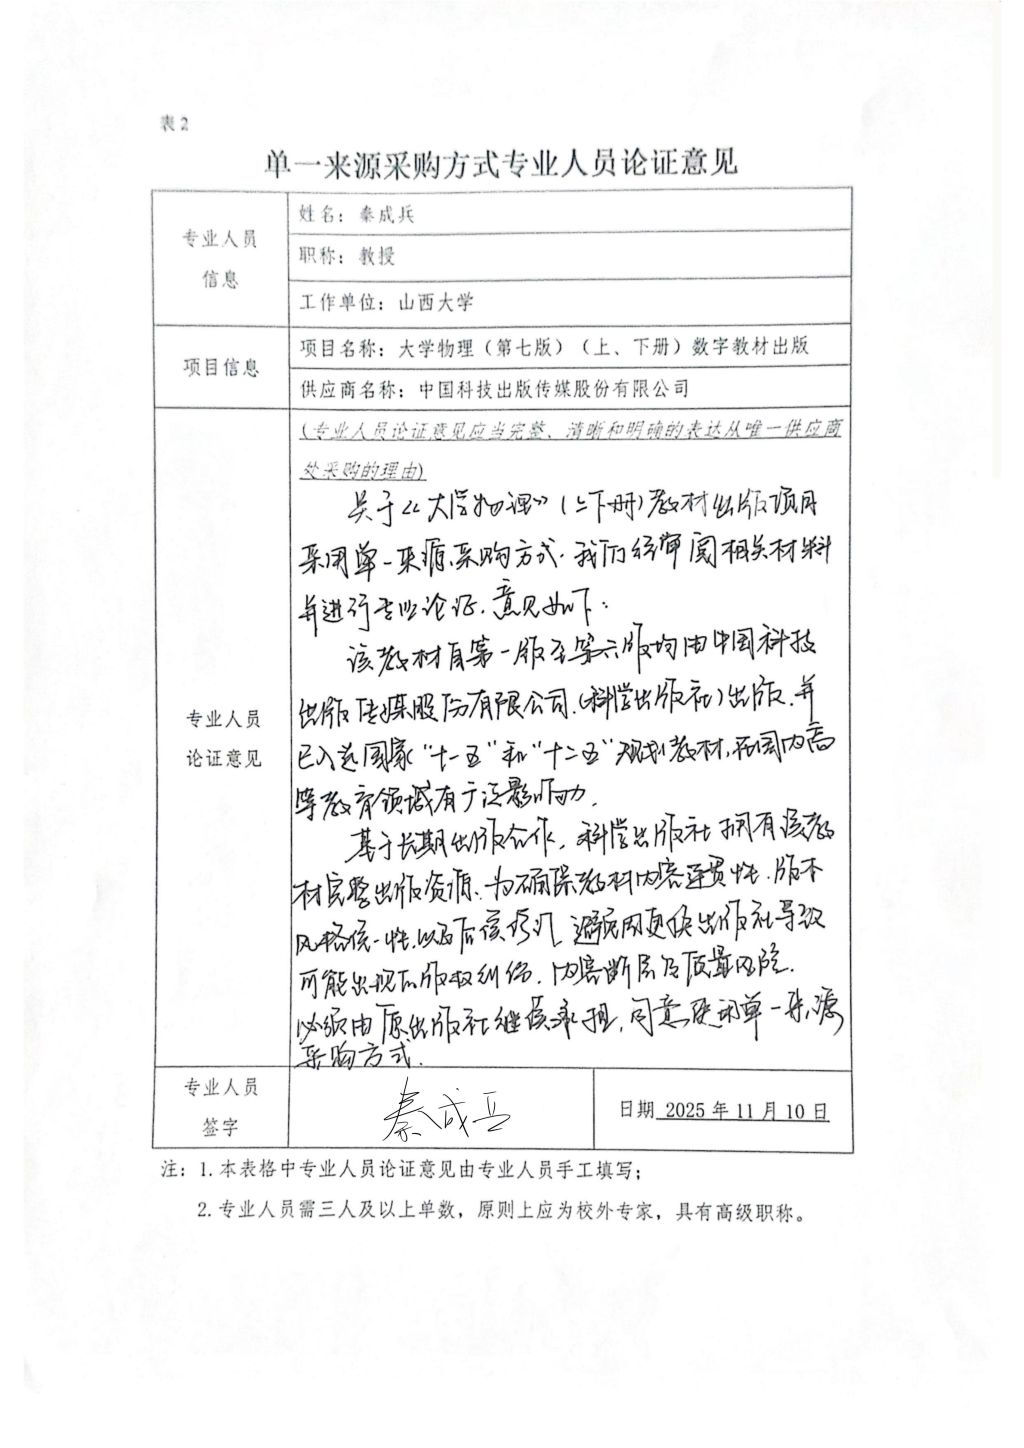 表2
单一来源采购方式专业人员论证意见
专业人员
信息
姓名：秦成兵
职称：教授
工作单位：山西大学
项目信息
项目名称：大学物理（第七版）（上、下册）数字教材出版
供应商名称：中国科技出版传媒股份有限公司
专业人员
论证意见
(专业人员论证意见应当完整、清晰和明确的表达从唯一供应商
处采购的理由)
关于《大学物理》(上下册)教材出版项目
采用单一来源采购方式.我们经审阅相关材料
并进行专业论证.意见如下:
该教材自第一版至第六版均由中国科技
出版传媒股份有限公司.(科学出版社)出版.并
已入选国家“十一五”和“十二五”规划教材,在国内高
等教育领域有广泛影响力.
基于长期出版合作,科学出版社拥有该教
材完整出版资源.为确保教材内容连贯性.版本
风格统一性.以及后续修订,避免因更换出版社导致
可能出现的版权纠纷.内容断层及质量风险.
必须由原出版社继续承担,同意使用单一来源
采购方式.
专业人员
签字
秦成兵
日期 2025年11月10日
注：1.本表格中专业人员论证意见由专业人员手工填写；
2.专业人员需三人及以上单数，原则上应为校外专家，具有高级职称。